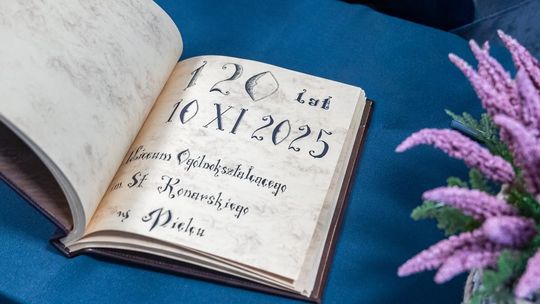 120 lat
10 XI 2025
Liceum Ogólnokształcącego
im. St. Konarskiego
w Mielcu